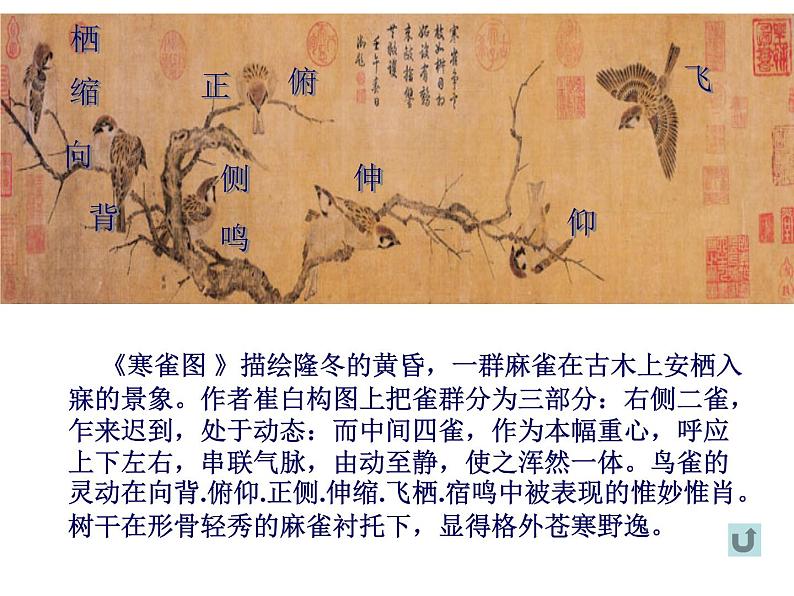 栖
缩
向
背
正
俯
侧
鸣
伸
仰
飞
壬午春日
御題
《寒雀图 》描绘隆冬的黄昏，一群麻雀在古木上安栖入
寐的景象。作者崔白构图上把雀群分为三部分：右侧二雀，
乍来迟到，处于动态：而中间四雀，作为本幅重心，呼应
上下左右，串联气脉，由动至静，使之浑然一体。鸟雀的
灵动在向背.俯仰.正侧.伸缩.飞栖.宿鸣中被表现的惟妙惟肖。
树干在形骨轻秀的麻雀衬托下，显得格外苍寒野逸。